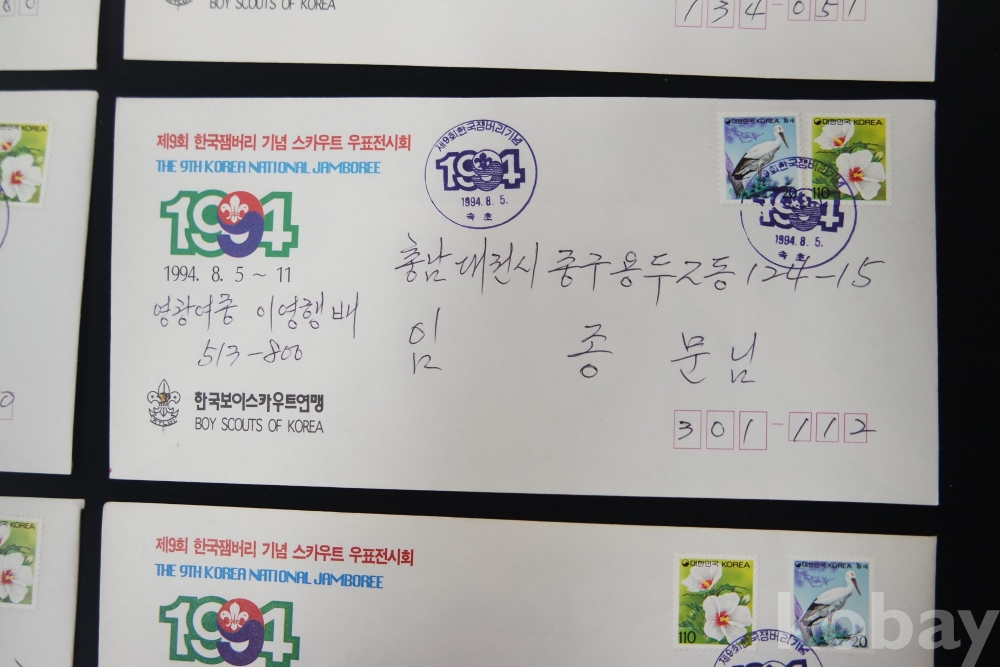 80
BOY SCOUTS OF KOREA
134-051
제9회 한국잼버리 기념 스카우트 우표전시회
THE 9TH KOREA NATIONAL JAMBOREE
1994
1994. 8. 5 ~ 11
영광여중 이영행 배
513-800
한국보이스카우트연맹
BOY SCOUTS OF KOREA
제9회한국잼버리기념
1994
1994. 8. 5.
속초
대한민국 KOREA 황새
20
대한민국 KOREA
110
제9회한국잼버리기념
1994
1994. 8. 5.
속초
충남 대전시 중구 용두2동 124-15
임 종 문님
301-112
KOREA
0
KOREA
제9회 한국잼버리 기념 스카우트 우표전시회
THE 9TH KOREA NATIONAL JAMBOREE
1994
대한민국 KOREA
110
대한민국 KOREA 황새
20
제9회한국잼버리기념
1994
kobay